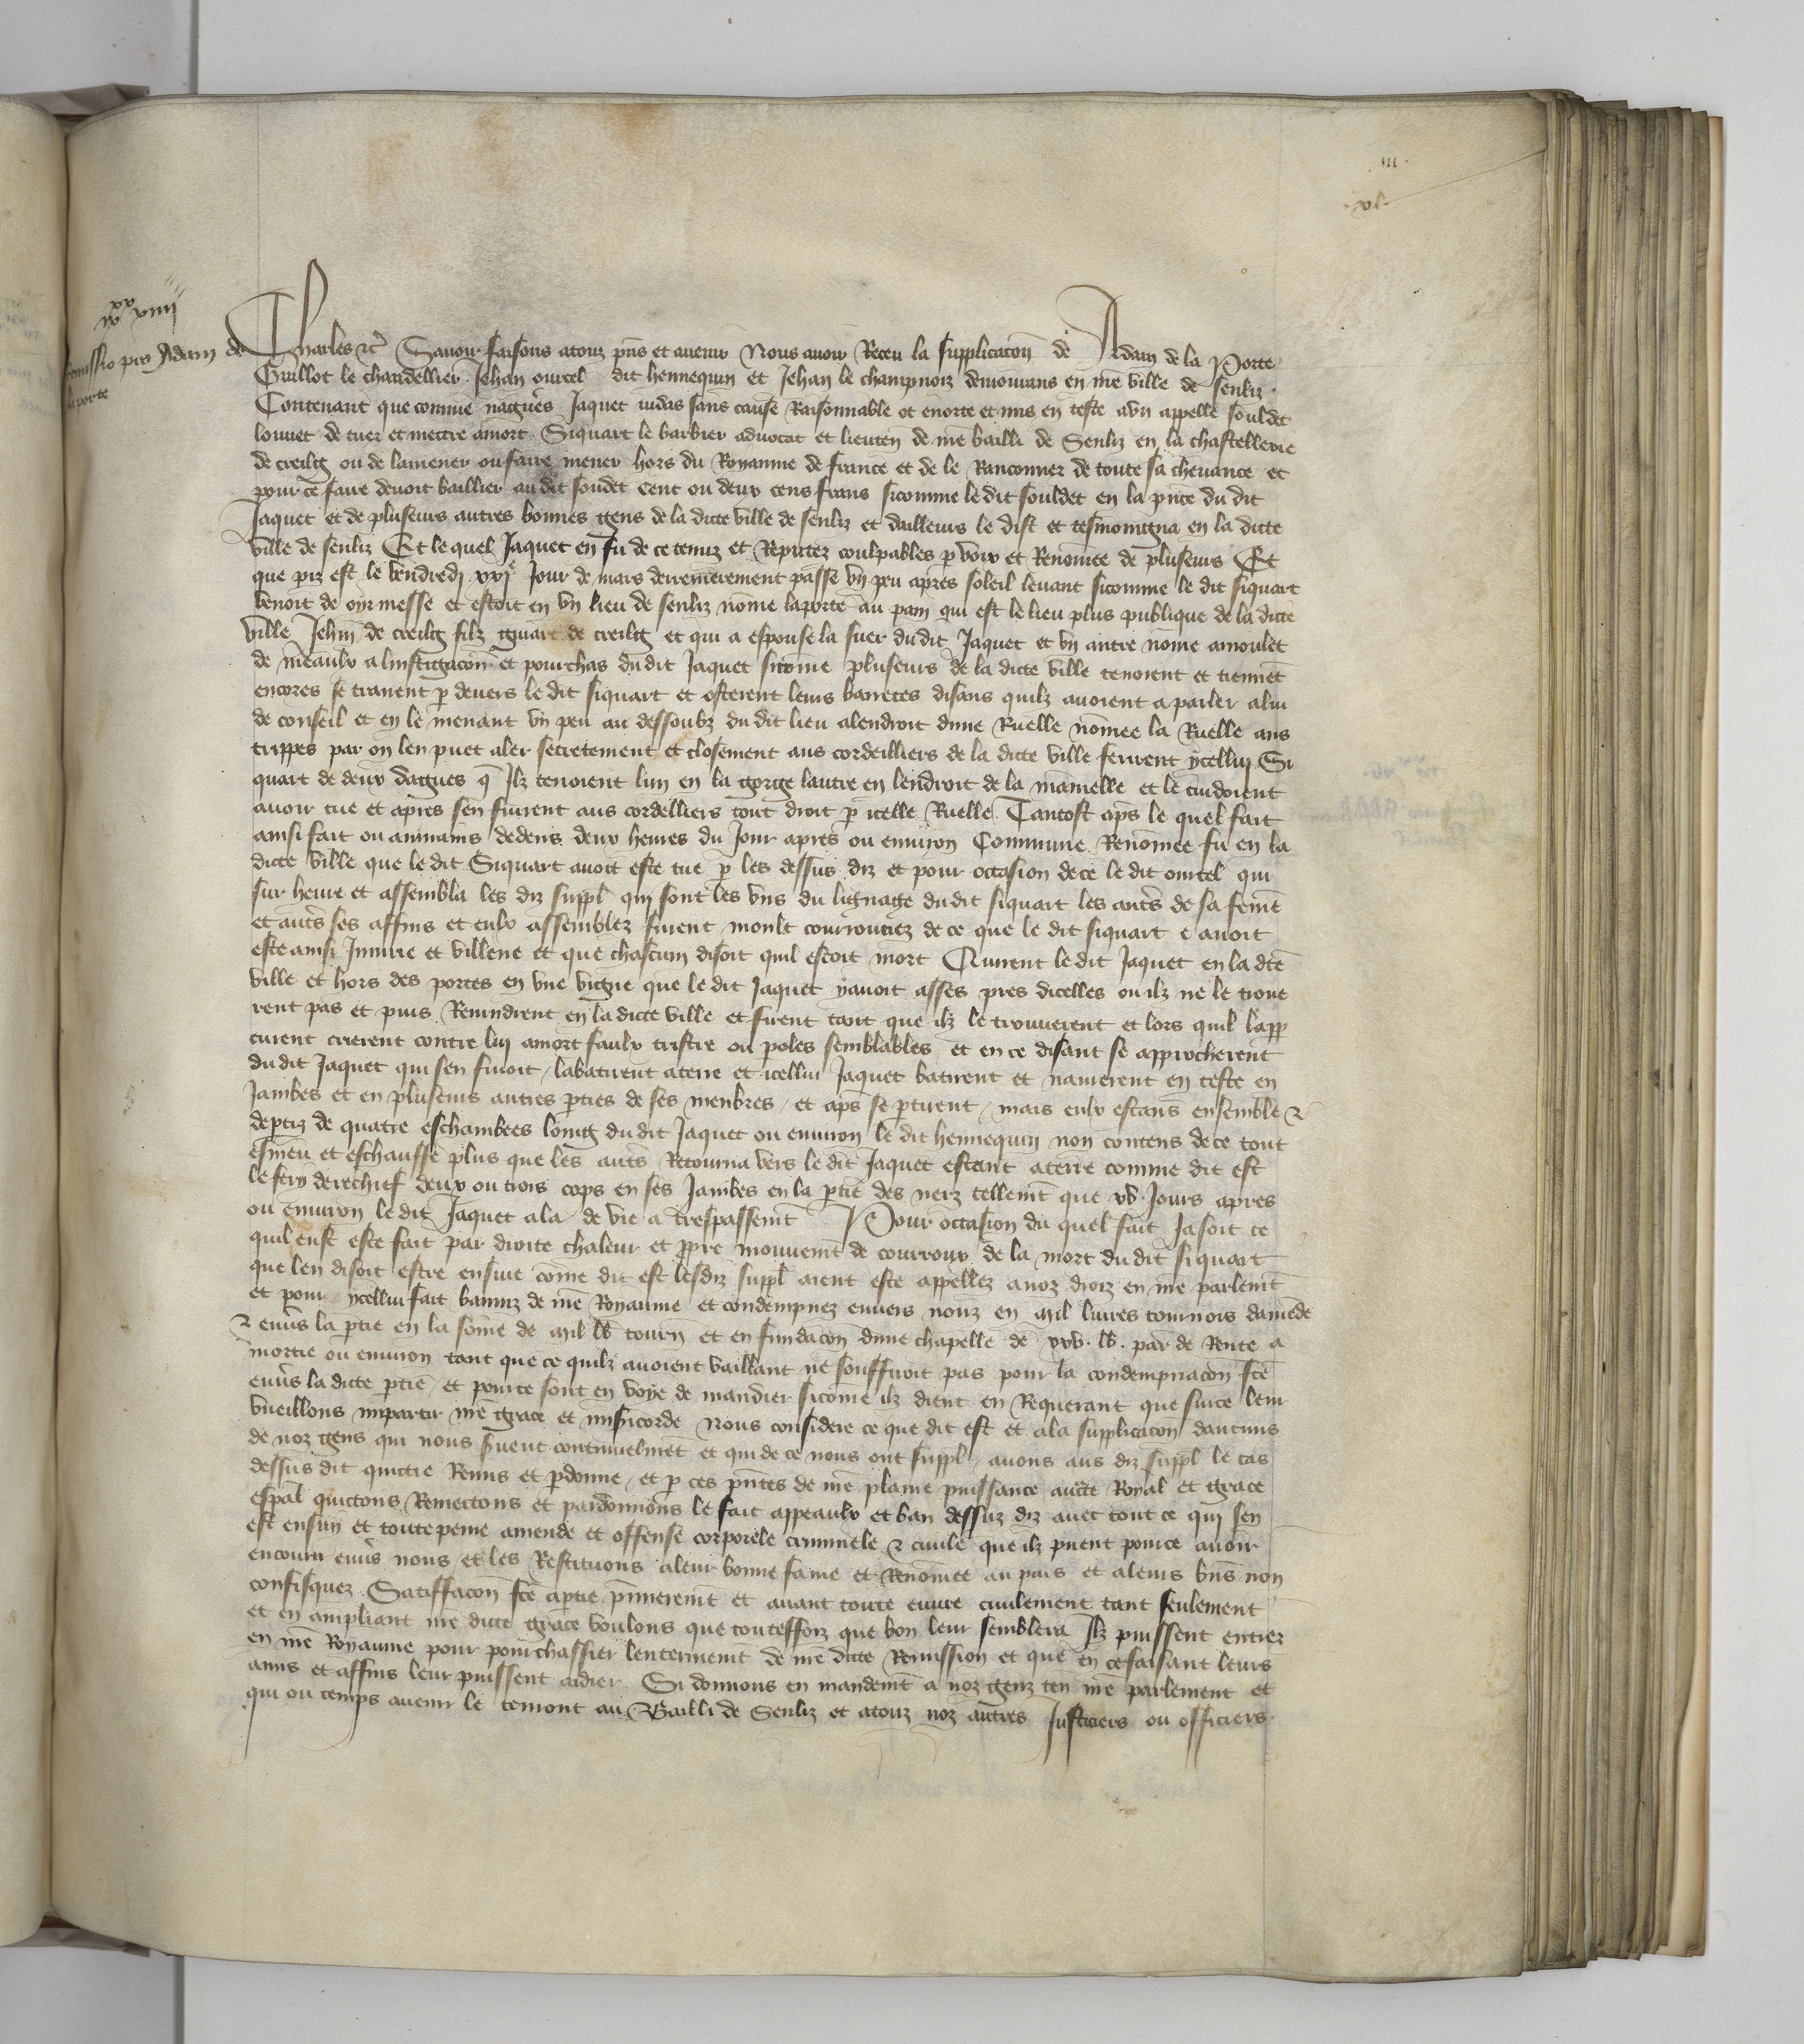 .III.
.XL.
IIIIxx XVIIII
Remissio pro Adam de
la porte
Charles etc̃ Sauoir faisons a touz pn̄s et auenir Nous auoir Receu la supplicacōn de Adam de la Porte
Guillot le chandellier Jehan ourcel dit hennequin et Jehan le champnoiz demourans en nr̄e ville de senliz
Contenant que comme nagueres Jaquet iudas sans cause Raisonnable ot enorte et mis en teste a vn appelle souldet
louuet de tuer et mettre a mort Siquart le barbier aduocat et lieuten̄ de nr̄e bailli de Senliz en la chastellerie
de creilg ou de lamener ou faire mener hors du Royaume de france et de le Ranconner de toute sa cheuance et
pour ce faire deuoit baillier au dit soudet Cent ou deux cens frans sicomme le dit souldet en la pn̄ce du dit
Jaquet et de pluseurs autres bonnes gens de la dicte ville de senliz et dailleurs le dist et tesmoingna en la dicte
ville de senliz Et le quel Jaquet en fu de ce tenuz et Reputez coulpables p voix et Renomee de pluseurs Et
que piz est le vendredi xxjᵉ Jour de mars derrenierement passe vn peu apres soleil leuant sicomme le dit siquart
venoit de oyr messe et estoit en vn lieu de senliz nōme la porte au pain qui est le lieu plus publique de la dicte
ville Jehan de creilg filz guiart de creilg et qui a espouse la suer du dit Jaquet et vn autre nōme arnoulet
de meaulx a linstigacōn et pourchas du dit Jaquet sicōme pluseurs de la dicte ville tenoient et tiennēt
encores se trairent p deuers le dit siquart et osterent leurs barretes disans quilz auoient a parler a lui
de conseil et en le menant vn peu au dessoubz du dit lieu a lendroit dune Ruelle nōmee la Ruelle aus
trippes par ou len puet aler secretement et closement aus cordeilliers de la dicte ville ferirent ycellui Si
quart de deux dagues q̄ Ilz tenoient lun en la gorge lautre en lendroit de la mamelle et le cuidoient
auoir tue et apres sen fuirent aus cordelliers tout droit p icelle Ruelle Tantost ap̄s le quel fait
ainsi fait ou aumains dedens deux heures du Jour apres ou enuiron Commune Renōmee fu en la
dicte ville que le dit Siquart auoit este tue p les dessus diz et pour occasion de ce le dit ourcel qui
sur heure et assembla les diz suppl̄ qui sont les vns du lignage dudit siquart les autr̄s de sa femē
et autr̄s ses affins et eulx assemblez furent moult courrouciez de ce que le dit siquart e auoit
este ainsi Iniurie et villene et que chascun disoit quil estoit mort Quirent le dit Jaquet en la dc̄e
ville et hors des portes en vne vigne que le dit Jaquet y auoit asses pres dicelles ou ilz ne le trouue
rent pas et puis Reuindrent en la dicte ville et firent tant que ilz le trouuerent et lors quil lapp
curent crierent contre lui a mort faulx tristre ou poles semblables et en ce disant se approcherent
du dit Jaquet qui sen fuioit / labatirent a terre et icellui Jaquet batirent et naurerent en teste en
Jambes et en pluseurs autres pties de ses menbres / et ap̄s se ptirent / mais eulx estans ensemble ⁊
deptiz de quatre eschambees loing du dit Jaquet ou enuiron le dit hennequin non contens de ce tout
esmeu et eschauffe plus que les autr̄s Retourna vers le dit Jaquet estant a terre comme dit est
le feri derechief deux ou trois cops en ses Jambes en la ptie des nerz tellemēt que xv. Jours apres
ou enuiron le dit Jaquet ala de vie a trespassemēt Pour occasion du quel fait Jasoit ce
quil eust este fait par droite chaleur et ppre mouuemēt de courroux de la mort du dit siquart
que len disoit estre ensuie cōme dit est lesdiz suppl̄ aient este appellez a noz droiz en nr̄e parlemēt
et pour ycellui fait banniz de nr̄e Royaume et condempnez enuers nouz en mil liures tournois damēde
⁊ enuers la ptie en la sōme de mil lb̄ tourn̄ et en fundacōn dune chapelle de xxv. lb̄. par̄ de Rente a
mortie ou enuiron tant que ce quilz auoient vaillant ne souffiroit pas pour la condempnacōn fc̄e
enuers la dicte ptie / et pour ce sont en voye de mandier sicōme ilz dient en Requerant que sur ce leur
vueillons impartir nr̄e grace et misericorde Nous considere ce que dit est et a la supplicacōn daucuns
de noz gens qui nous seruent continuelmēt et qui de ce nous ont suppl̄ / auons aus diz suppl̄ le cas
dessus dit quictie Remis et pdonne / et p ces pn̄tes de nr̄e plaine puissance aucte Royal et grace
espal̄ quictons Remectons et pardonnons le fait appeaulx et ban dessuz diz auec tout ce qui sen
est ensuy et toute peine amende et offense corporele criminele ⁊ ciuile que ilz puent pour ce auoir
encouru enuers nous et les Restituons a leur bonne fame et Renōmee au pais et a leurs bn̄s non
confisquez Satiffacōn fc̄e a ptie p̄mieremēt et auant toute euure ciuilement tant seulement
et en ampliant nr̄e dicte grace voulons que touteffoiz que bon leur semblera Ilz puissent entrer
en nr̄e Royaume pour pourchassier lenterinemēt de nr̄e dicte Remission et que en ce faisant leurs
amis et affins leur puissent aidier Si donnons en mandemēt a noz genz ten̄ nr̄e parlement et
qui ou temps auenir le tenront au Bailli de Senliz et a touz noz autres Justiciers ou officiers